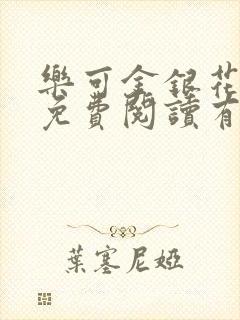 樂可金銀花
免費閱讀有
葉塞尼婭